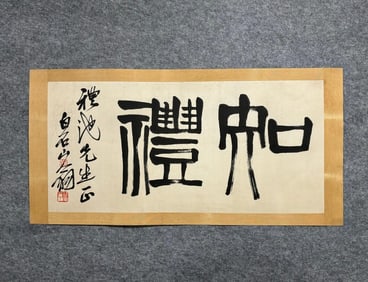 知禮
禮池先生正
白石山翁